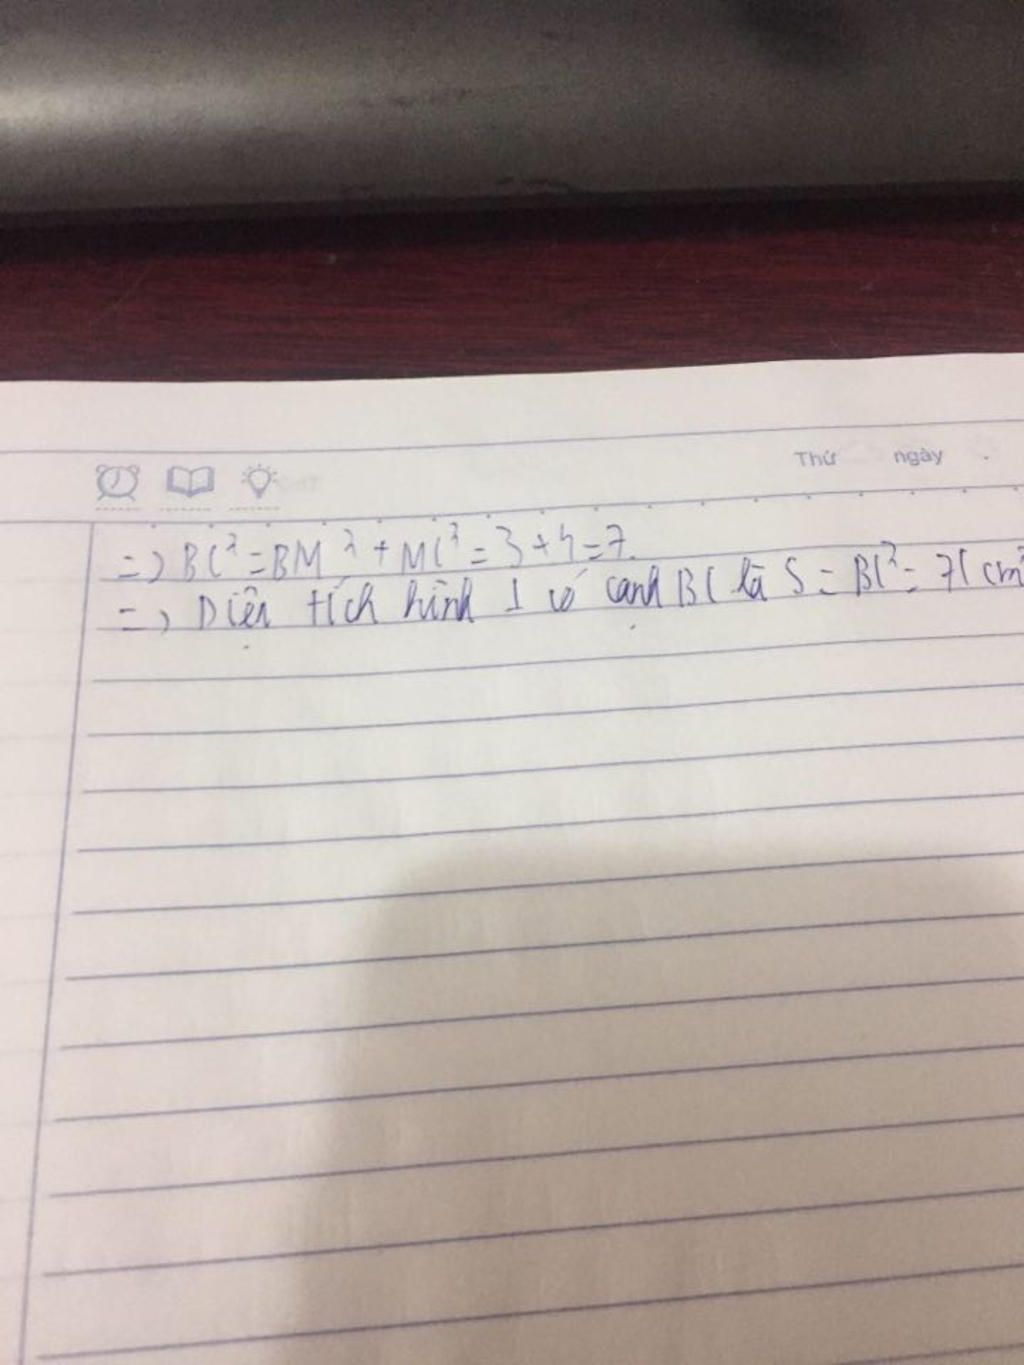 Thứ ngày .
=> BC² = BM² + MC² = 3 + 4 = 7.
=> Diện tích hình 1 có cạnh BC là S = BC² = 7(cm²